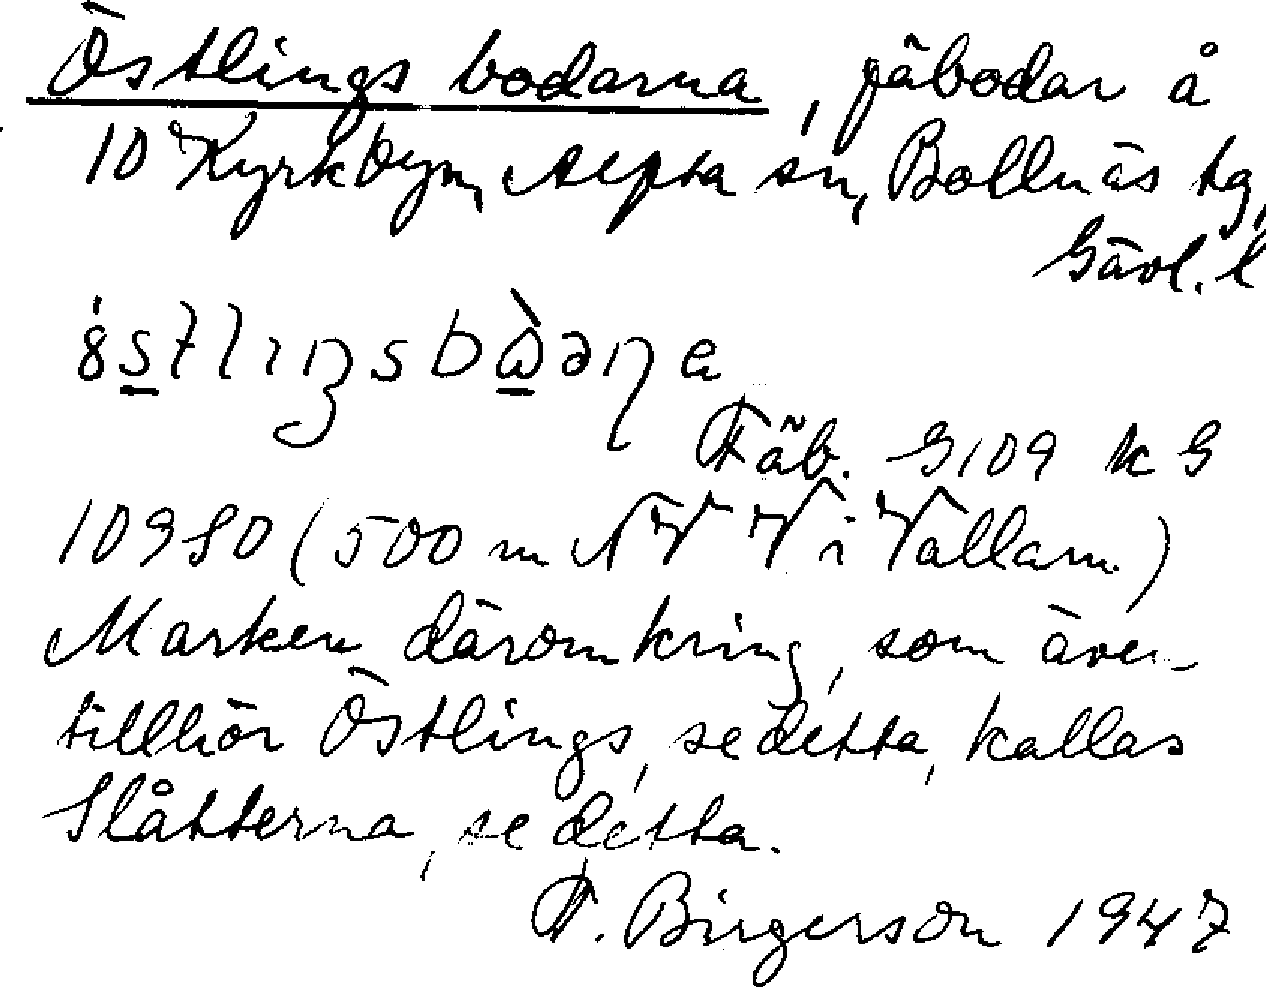 Östlings bodarna, fäbodar å
10 Kyrkbyn, Alfta sn, Bollnäs tg,
Gävl. l
Fäb. G109 k G
10980 (500 m NV V i Vallam.)
Marken däromkring, som även
tillhör Östlings, se detta, kallas
Slåtterna, se detta.
F. Birgerson 1947